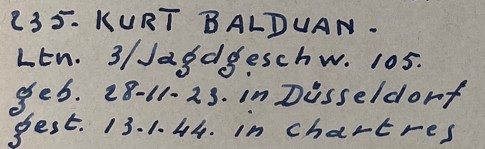 235. KURT BALDUAN.
Ltn. 3/Jagdgeschw. 105.
geb. 28-11-23. in Düsseldorf
gest. 13.1.44. in chartres